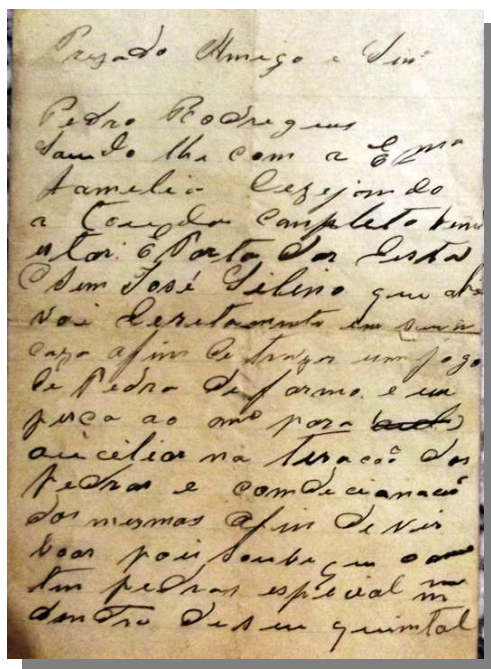 Prezado Amigo e Sinr
Pedro Rodrigues
Saudo lhe com a Exma
familia dezejando
a todos completo bem
estar. É Portador desta
o Sem José Silino que
vai deretamente em sua
caza afim de trazer um jogo
de Pedra de formo. e eu
peço ao mo para
aucéliar na tiração das
Pedras e comdecionacão
das mesmas afim de vir
boas pois soube que o
tem pedras especial
dentro de seu quintal